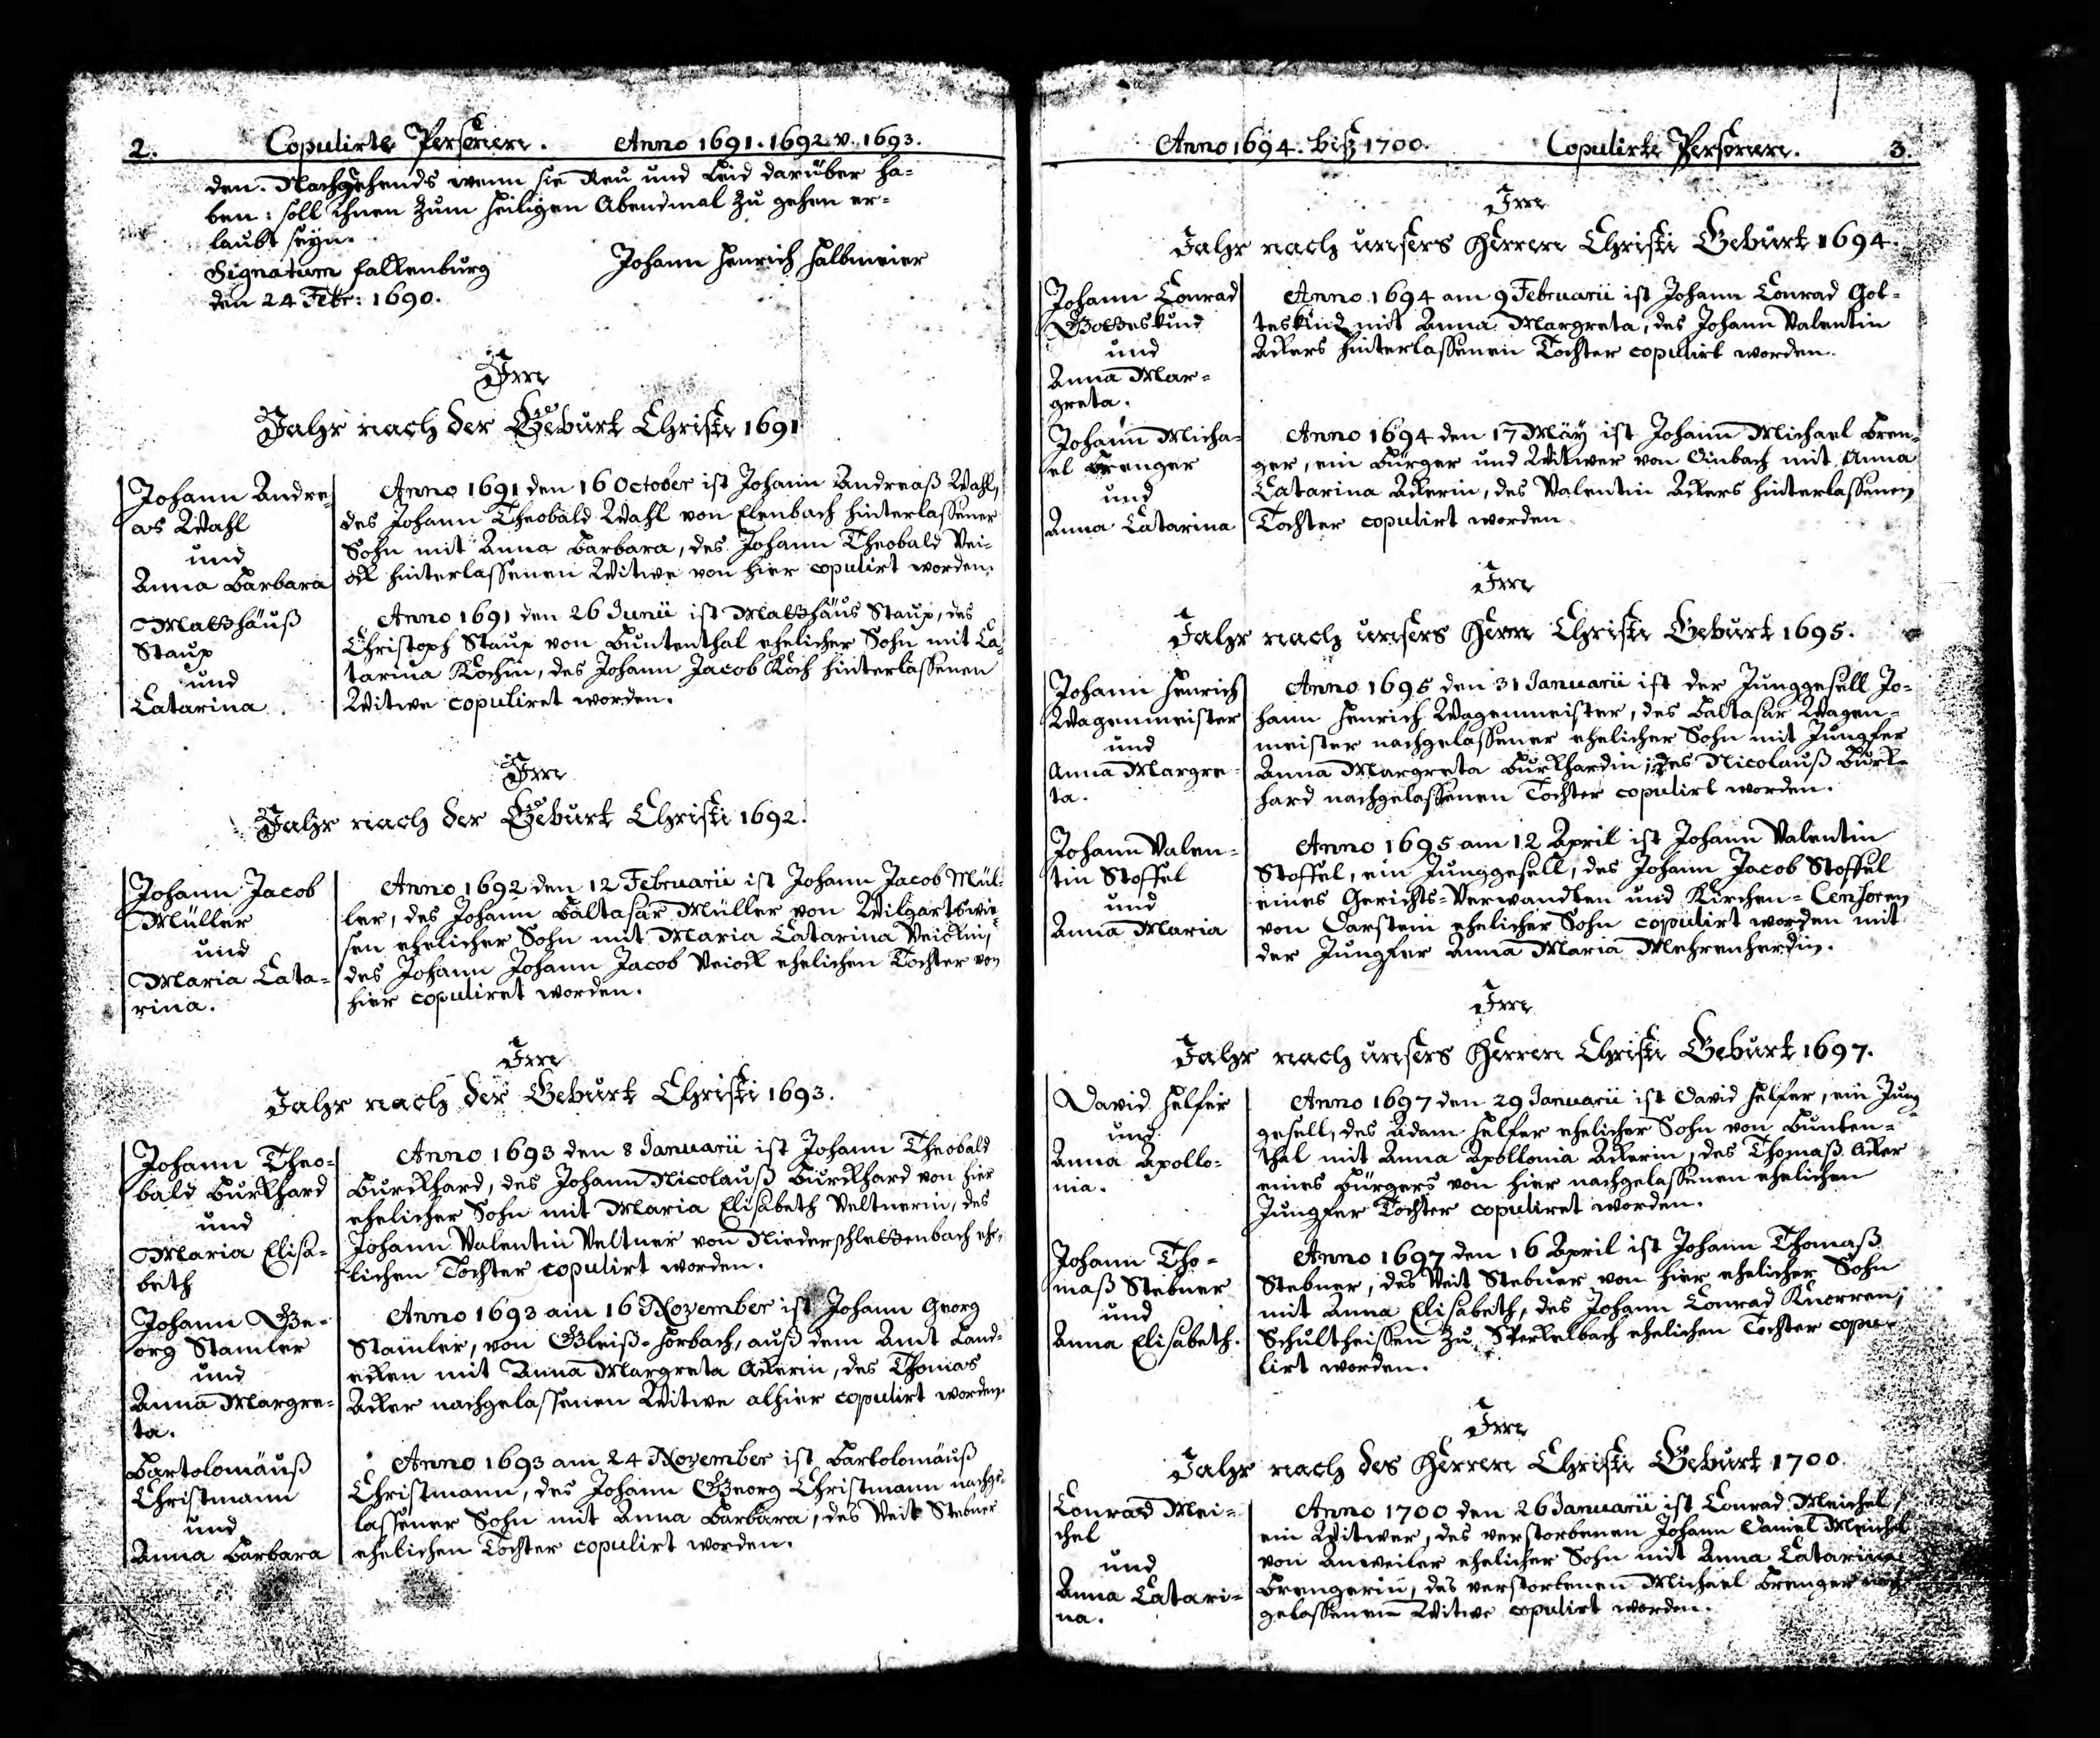 2. Copulirte Personen. Anno 1691. 1692 v. 1693.
den. Nachgehends wenn sie Reu und Leid darüber ha-
ben: soll ihnen zum heiligen Abendmal zu gehen er-
laubt seyn.
Signatum Falkenburg Johann Henrich Halbmeier
den 24 Febr: 1690.
Im
Jahr nach der Geburt Christi 1691
Johann Andre-
as Wahl
und
Anna Barbara
Anno 1691 den 16 October ist Johann Andreaß Wahl,
des Johann Theobald Wahl von Elenbach hinterlassener
Sohn mit Anna Barbara, des Johann Theobald Vei-
ock hinterlassenen Witwe von hier copulirt worden.
Matthäuß
Staup
und
Catarina
Anno 1691 den 26 Junii ist Matthäus Staup, des
Christoph Staup von Buntenthal ehelicher Sohn mit Ca-
tarina Kochin, des Johann Jacob Koch hinterlassenen
Witwe copuliret worden.
Im
Jahr nach der Geburt Christi 1692.
Johann Jacob
Müller
und
Maria Cata-
rina.
Anno 1692 den 12 Februarii ist Johann Jacob Mül-
ler, des Johann Baltasar Müller von Wilgartswie-
sen ehelicher Sohn mit Maria Catarina Veiockin,
des Johann Johann Jacob Veiock ehelichen Tochter von
hier copuliret worden.
Im
Jahr nach der Geburt Christi 1693.
Johann Theo-
bald Burkhard
und
Maria Elisa-
beth
Anno 1693 den 8 Januarii ist Johann Theobald
Burckhard, des Johann Nicolauß Burckhard von hier
ehelicher Sohn mit Maria Elisabeth Veltnerin, des
Johann Valentin Veltner von Niederschlettenbach ehe-
lichen Tochter copulirt worden.
Johann Ge-
org Stamler
und
Anna Margre-
ta.
Anno 1693 am 16 November ist Johann Georg
Stamler, von Gleiß-Horbach, auß dem Amt Land-
ecken mit Anna Margreta Ackerin, des Thomas
Acker nachgelassenen Witwe alhier copulirt worden.
Bartolomäuß
Christmann
und
Anna Barbara
Anno 1693 am 24 November ist Bartolomäuß
Christmann, des Johann Georg Christmann nachge-
lassener Sohn mit Anna Barbara, des Veit Stebner
ehelichen Tochter copulirt worden.
Anno 1694. biß 1700. Copulirte Personen. 3.
Im
Jahr nach unsers Herren Christi Geburt 1694.
Johann Conrad
Gotteskind
und
Anna Mar-
greta.
Anno 1694 am 9 Februarii ist Johann Conrad Got-
teskind mit Anna Margreta, des Johann Valentin
Ackers hinterlassenen Tochter copulirt worden.
Johann Micha-
el Brenger
und
Anna Catarina
Anno 1694 den 17 Mäy ist Johann Michael Bren-
ger, ein Bürger und Witwer von Einbach mit Anna
Catarina Ackerin, des Valentin Ackers hinterlassenen
Tochter copulirt worden
Im
Jahr nach unsers Herrn Christi Geburt 1695.
Johann Henrich
Wagenmeister
und
Anna Margre-
ta.
Anno 1695 den 31 Januarii ist der Junggesell Jo-
hann Henrich Wagenmeister, des Baltasar Wagen-
meister nachgelassener ehelicher Sohn mit Jungfer
Anna Margreta Burkhardin, des Nicolauß Burk-
hard nachgelassenen Tochter copulirt worden.
Johann Valen-
tin Stoffel
und
Anna Maria
Anno 1695 am 12 April ist Johann Valentin
Stoffel, ein Junggesell, des Johann Jacob Stoffel
eines Gerichts-Verwandten und Kirchen-Censoren
von Darstein ehelicher Sohn copulirt worden mit
der Jungfer Anna Maria Mehrenherdin.
Im
Jahr nach unsers Herren Christi Geburt 1697.
David Helfer
und
Anna Apollo-
nia.
Anno 1697 den 29 Januarii ist David Helfer, ein Jung-
gesell, des Adam Helfer ehelicher Sohn von Bunten-
thal mit Anna Apollonia Ackerin, des Thomaß Acker
eines Bürgers von hier nachgelassenen ehelichen
Jungfer Tochter copuliret worden.
Johann Tho-
maß Stebner
und
Anna Elisabeth.
Anno 1697 den 16 April ist Johann Thomaß
Stebner, des Veit Stebner von hier ehelicher Sohn
mit Anna Elisabeth, des Johann Conrad Knorren,
Schultheissen zu Sperkelbach ehelichen Tochter copu-
lirt worden.
Im
Jahr nach des Herren Christi Geburt 1700
Conrad Mei-
chel
und
Anna Catari-
na.
Anno 1700 den 26 Januarii ist Conrad Meichel,
ein Witwer, des verstorbenen Johann Daniel Meichel
von Anweiler ehelicher Sohn mit Anna Catarina
Brengerin, des verstorbenen Michael Brenger nach-
gelassenen Witwe copulirt worden.